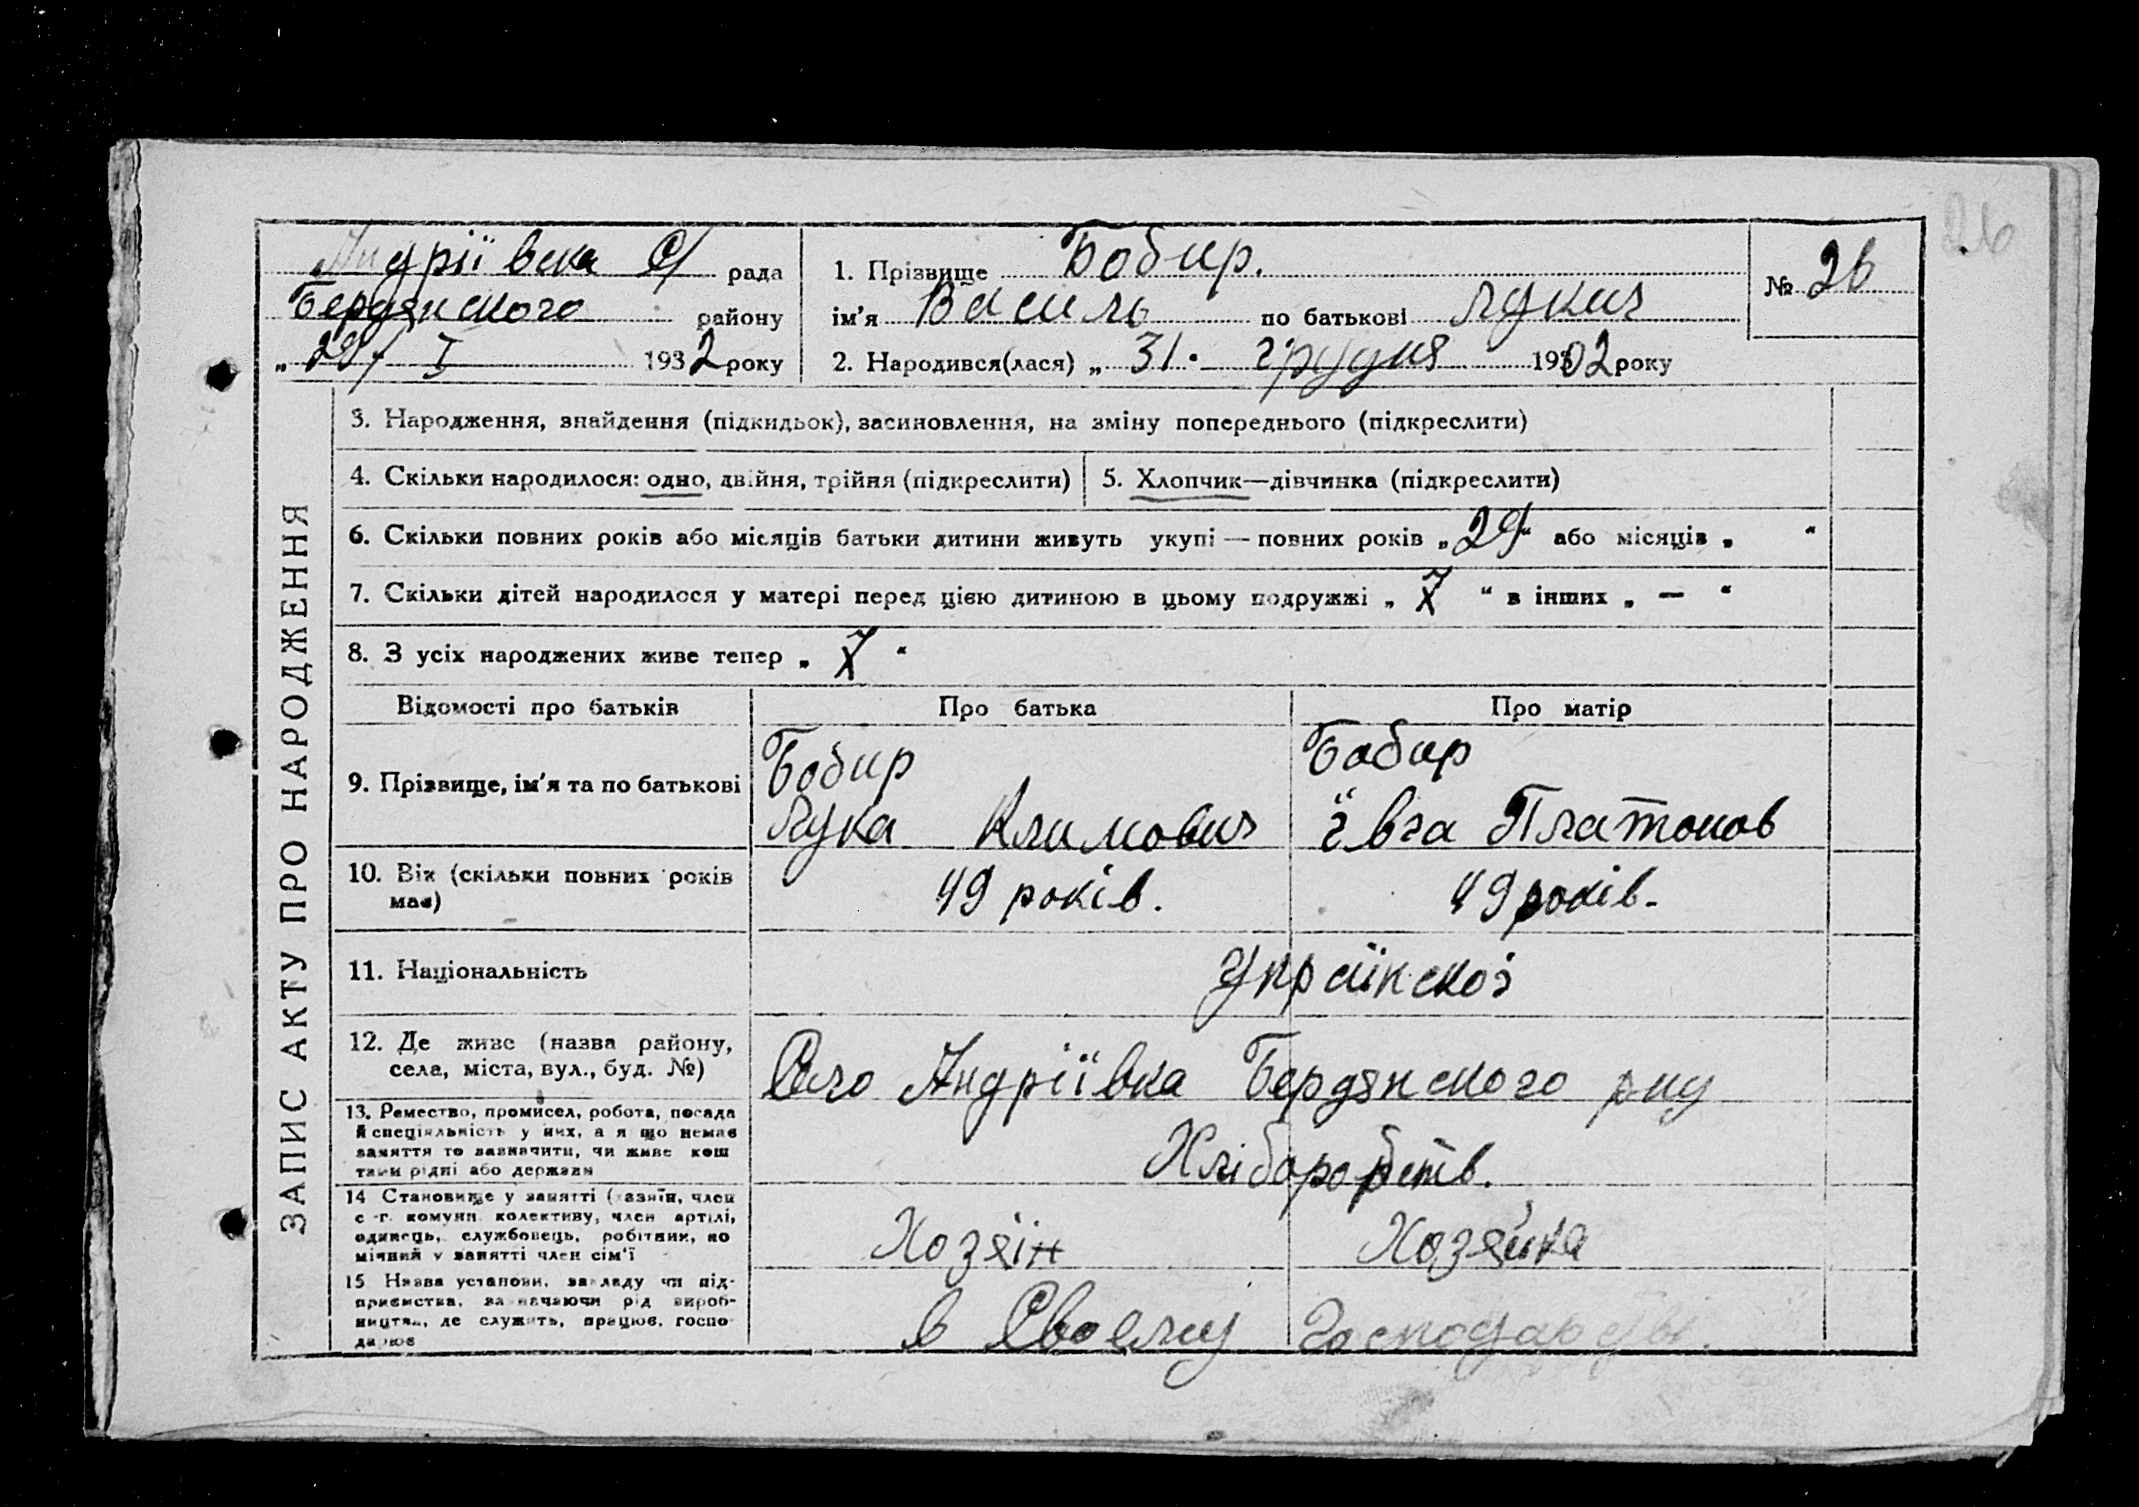 26
Андріївска С/ рада
Бердянского району
„ 29/ I 1932 року
1. Прізвище Бобир.
ім'я Василь по батькові Лукич
2. Народився(лася) „ 31. грудня 1902 року
№ 26
ЗАПИС АКТУ ПРО НАРОДЖЕННЯ
3. Народження, знайдення (підкидьок), засиновлення, на зміну попереднього (підкреслити)
4. Скільки народилося: одно, двійня, трійня (підкреслити)
5. Хлопчик—дівчинка (підкреслити)
6. Скільки повних років або місяців батьки дитини живуть укупі — повних років „ 29 “ або місяців „ “
7. Скільки дітей народилося у матері перед цією дитиною в цьому подружжі „ 7 “ в інших „ — “
8. З усіх народжених живе тепер „ 7 “
Відомості про батьків Про батька Про матір
9. Прізвище, ім'я та по батькові
Бобир
Лука Климович
Бобир
Ївга Платонов
10. Вік (скільки повних років
має)
49 років. 49 років.
11. Національність
Украінскоі
12. Де живе (назва району,
села, міста, вул., буд. №)
Село Андріївка Бердянского рну
13. Ремество, промисел, робота, посада
й спеціяльність у них, а я що немає
заняття то зазначити, чи живе кош
тами рідні або держави
Хліборобств.
14 Становище у занятті (хазяїн, член
с -г. комуни колективу, член артілі,
одинець, службовець, робітник, по
мічний у занятті член сім'ї
Хозяін Хозяйка
15 Назва установи, закладу чи під-
приємства, зазначаючи рід вироб-
ництва, де служить, працює, госпо-
дарює
в Своему Господарстві.